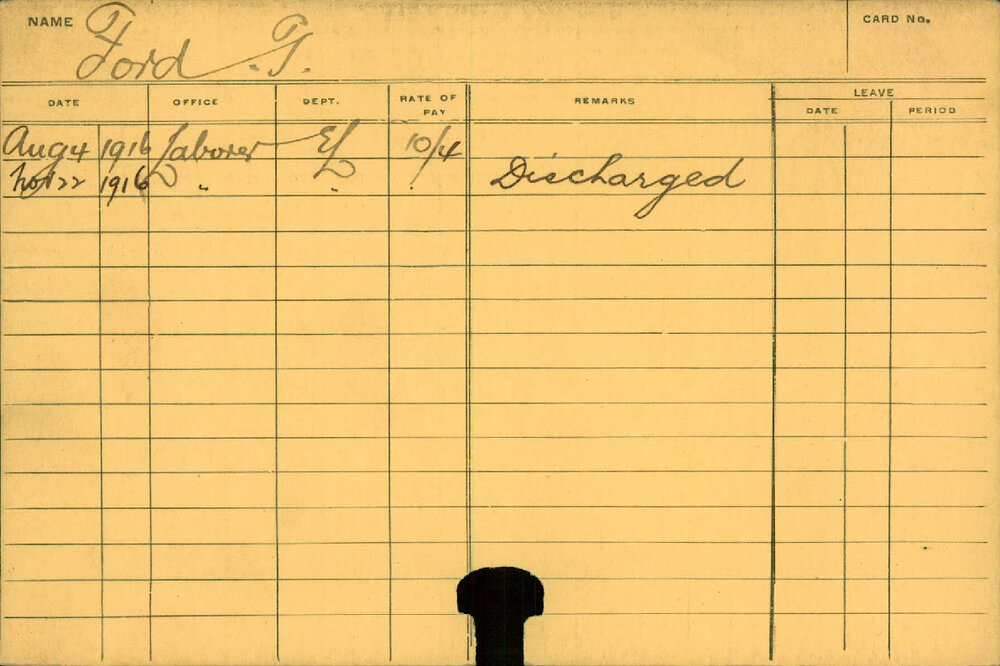 NAME Ford . T. CARD No.
DATE OFFICE DEPT. RATE OF PAY REMARKS LEAVE
DATE PERIOD
Aug 4 1916 Laborer EL 10/4
Nov 22 1916 " " " Discharged